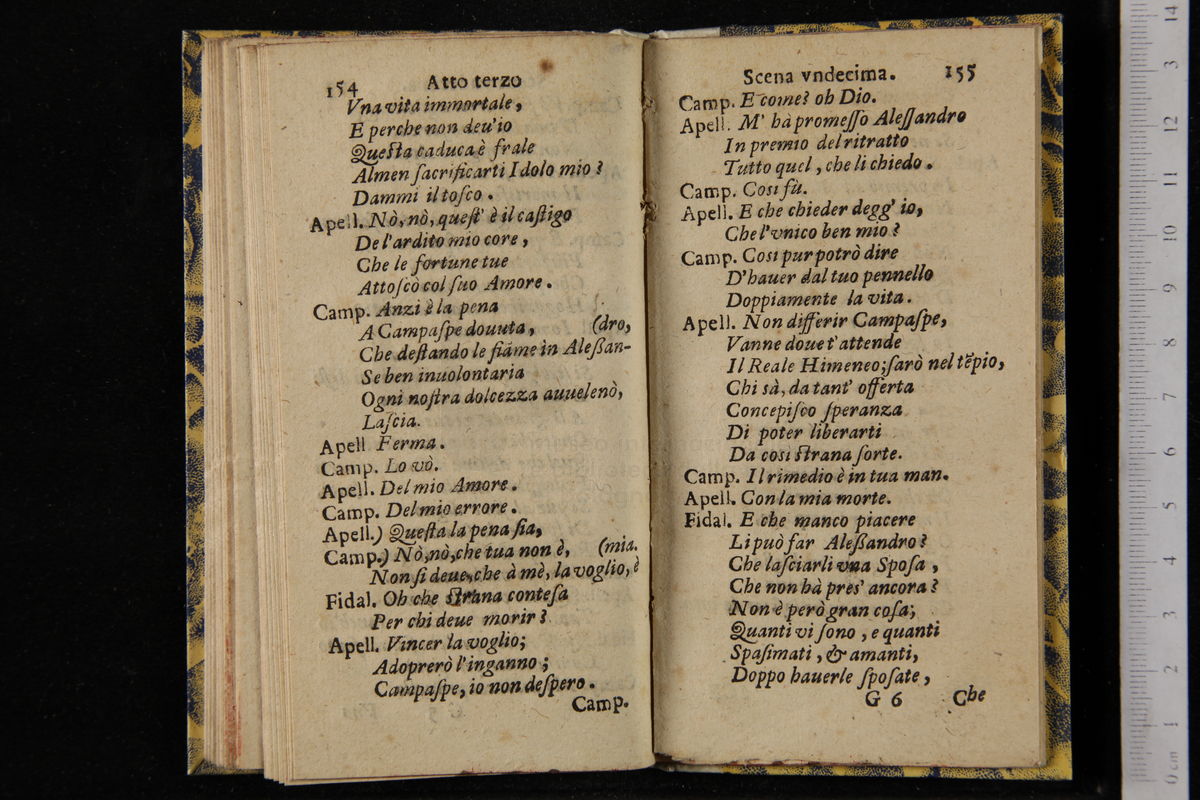 154 Atto terzo
Vna vita immortale,
E perche non deu'io
Questa caduca è frale
Almen sacrificarti Idolo mio?
Dammi il tosco.
Apell. Nò, nò, quest' è il castigo
De l'ardito mio core,
Che le fortune tue
Attoscò col suo Amore.
Camp. Anzi è la pena
A Campaspe douuta, (dro,
Che destando le fiāme in Aleßan-
Se ben inuolontaria
Ogni nostra dolcezza auuelenò,
Lascia.
Apell Ferma.
Camp. Lo vò.
Apell. Del mio Amore.
Camp. Del mio errore.
Apell.) Questa la pena sia,
Camp.) Nò, nò, che tua non è, (mia.
Non si deue, che à mè, la voglio, è
Fidal. Oh che strana contesa
Per chi deue morir?
Apell. Vincer la voglio;
Adoprerò l'inganno;
Campaspe, io non despero.
Camp.
Scena vndecima. 155
Camp. E come? oh Dio.
Apell. M' hà promesso Alessandro
In premio del ritratto
Tutto quel, che li chiedo.
Camp. Cosi fù.
Apell. E che chieder degg' io,
Che l'vnico ben mio?
Camp. Cosi pur potrò dire
D'hauer dal tuo pennello
Doppiamente la vita.
Apell. Non differir Campaspe,
Vanne doue t'attende
Il Reale Himeneo; sarò nel tēpio,
Chi sà, da tant' offerta
Concepisco speranza
Di poter liberarti
Da cosi strana sorte.
Camp. Il rimedio è in tua man.
Apell. Con la mia morte.
Fidal. E che manco piacere
Li può far Aleßandro?
Che lasciarli vna Sposa,
Che non hà pres' ancora?
Non è però gran cosa;
Quanti vi sono, e quanti
Spasimati, & amanti,
Doppo hauerle sposate,
G 6 Che
0 cm 1 2 3 4 5 6 7 8 9 10 11 12 3 14